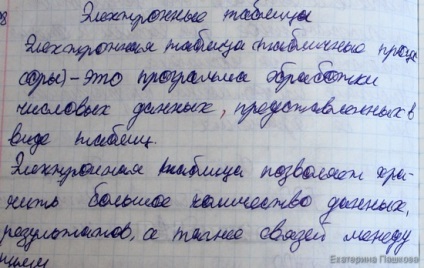 Электронные таблицы
Электронная таблица (табличные проце
соры) - это программа обработки
числовых данных, представленных в
виде таблиц.
Электронная таблица позволяет хра-
нить большое количество данных,
результатов, а также связей между
ними
Екатерина Пашкова